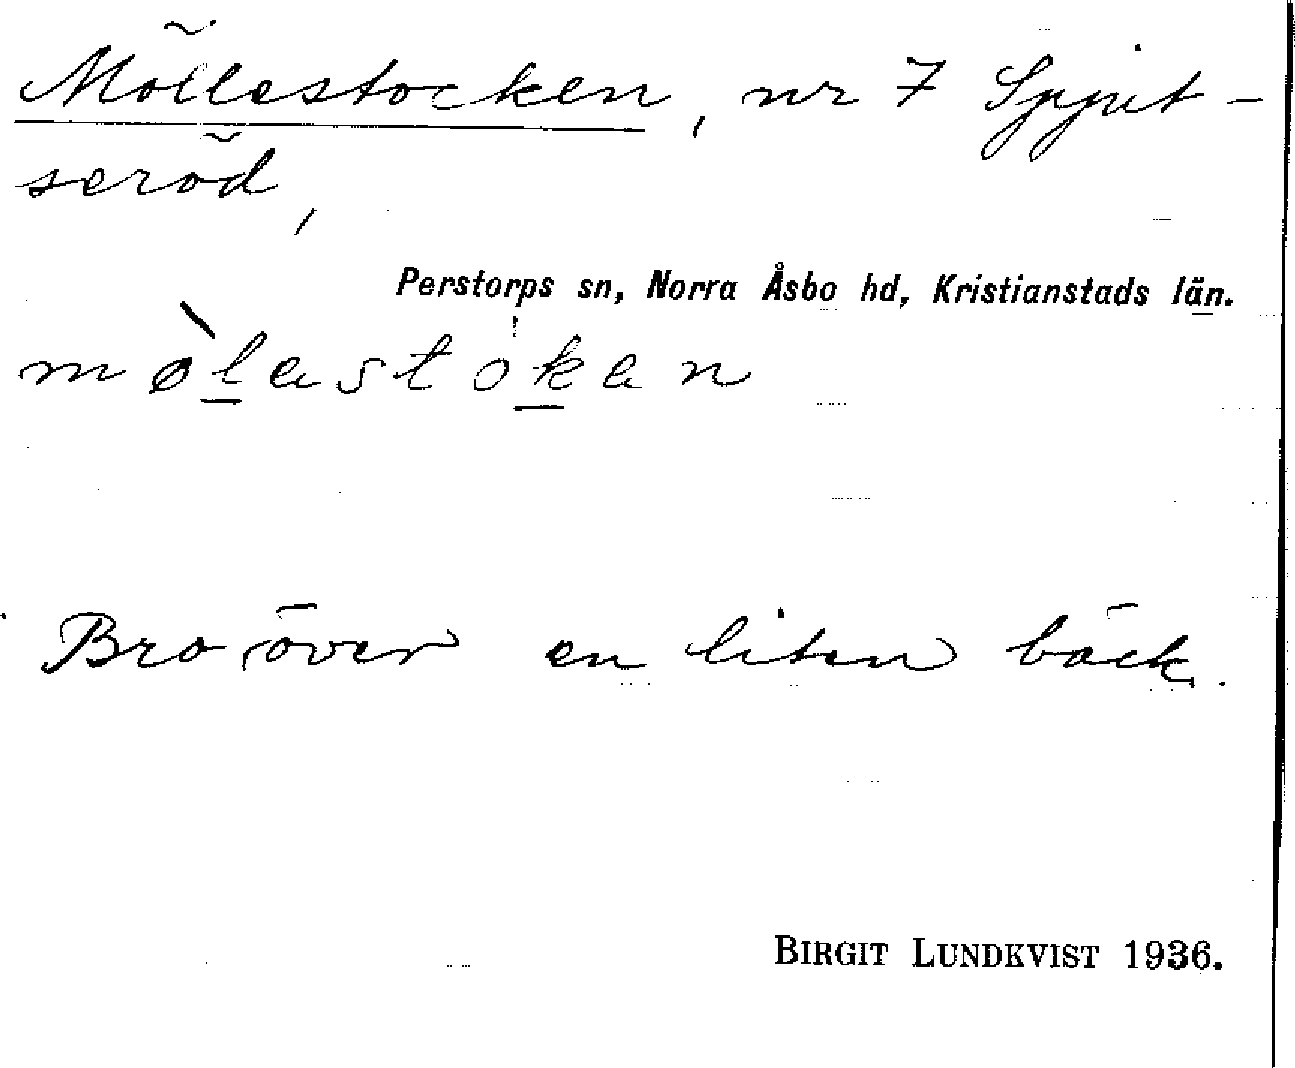 Möllestocken, nr 7 Spjut-
seröd,
Perstorps sn, Norra Åsbo hd, Kristianstads län.
mø̀l̲estók̲en
Bro över en liten bäck.
BIRGIT LUNDKVIST 1936.